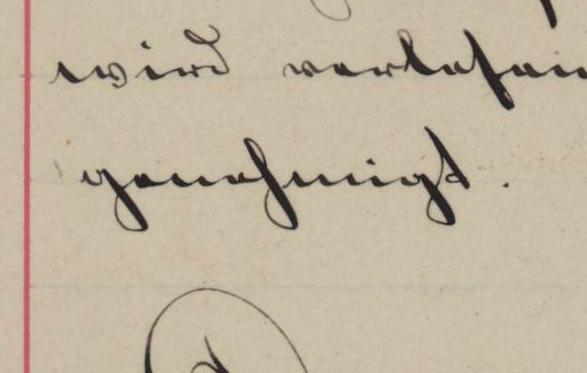 wird verlesen
genehmigt.